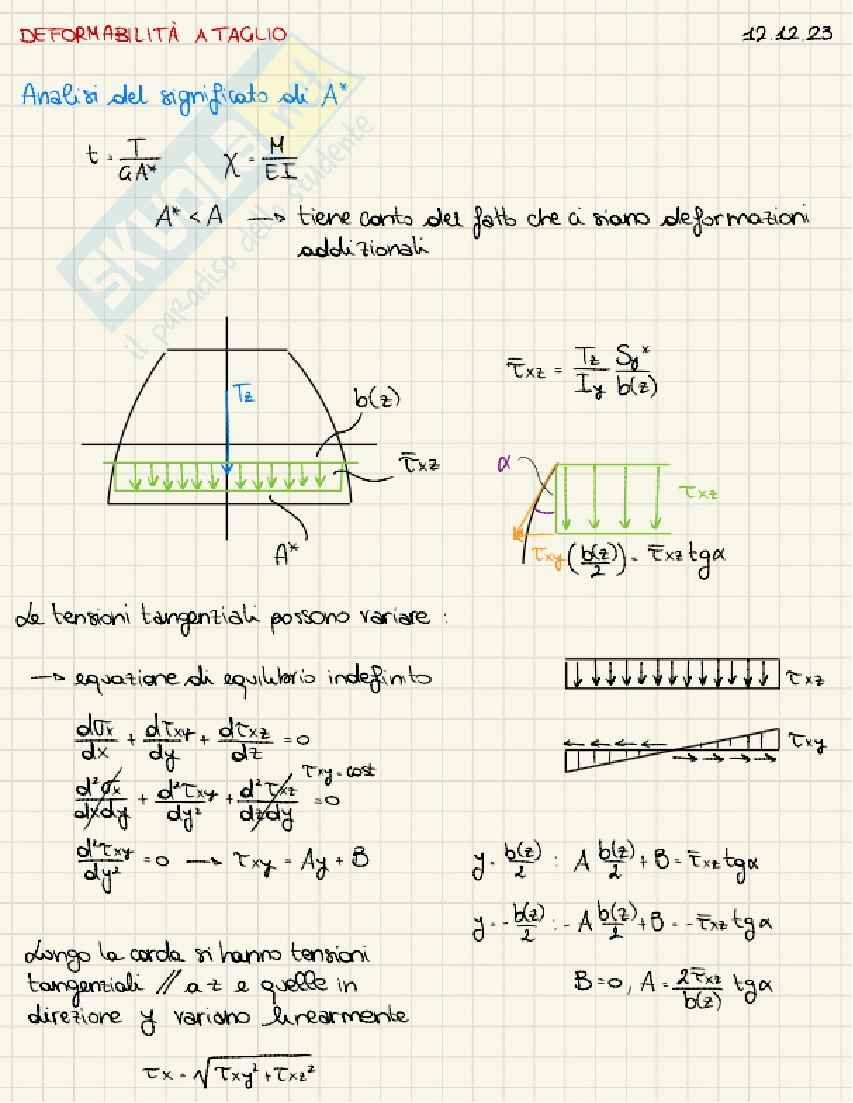 DEFORMABILITÀ A TAGLIO
12.12.23
Analisi del significato di A*
t = T/GA*    χ = M/EI
A* < A → tiene conto del fatto che ci siano deformazioni
addizionali
SKUOLA.net
il paradiso dello studente
Tz
b(z)
τ̄xz
A*
τ̄xz = Tz/Iy Sy*/b(z)
α
τxz
τxy (b(z)/2) = τ̄xz tgα
Le tensioni tangenziali possono variare :
→ equazione di equilibrio indefinito
dσx/dx + dτxy/dy + dτxz/dz = 0
τxy = cost
d²σx/dxdy + d²τxy/dy² + d²τxz/dzdy = 0
d²τxy/dy² = 0 → τxy = Ay + B
τxz
τxy
y = b(z)/2 : A b(z)/2 + B = τ̄xz tgα
y = -b(z)/2 : -A b(z)/2 + B = -τ̄xz tgα
B = 0, A = 2τ̄xz/b(z) tgα
Lungo la corda si hanno tensioni
tangenziali // a z e quelle in
direzione y variano linearmente
τx = √τxy² + τxz²